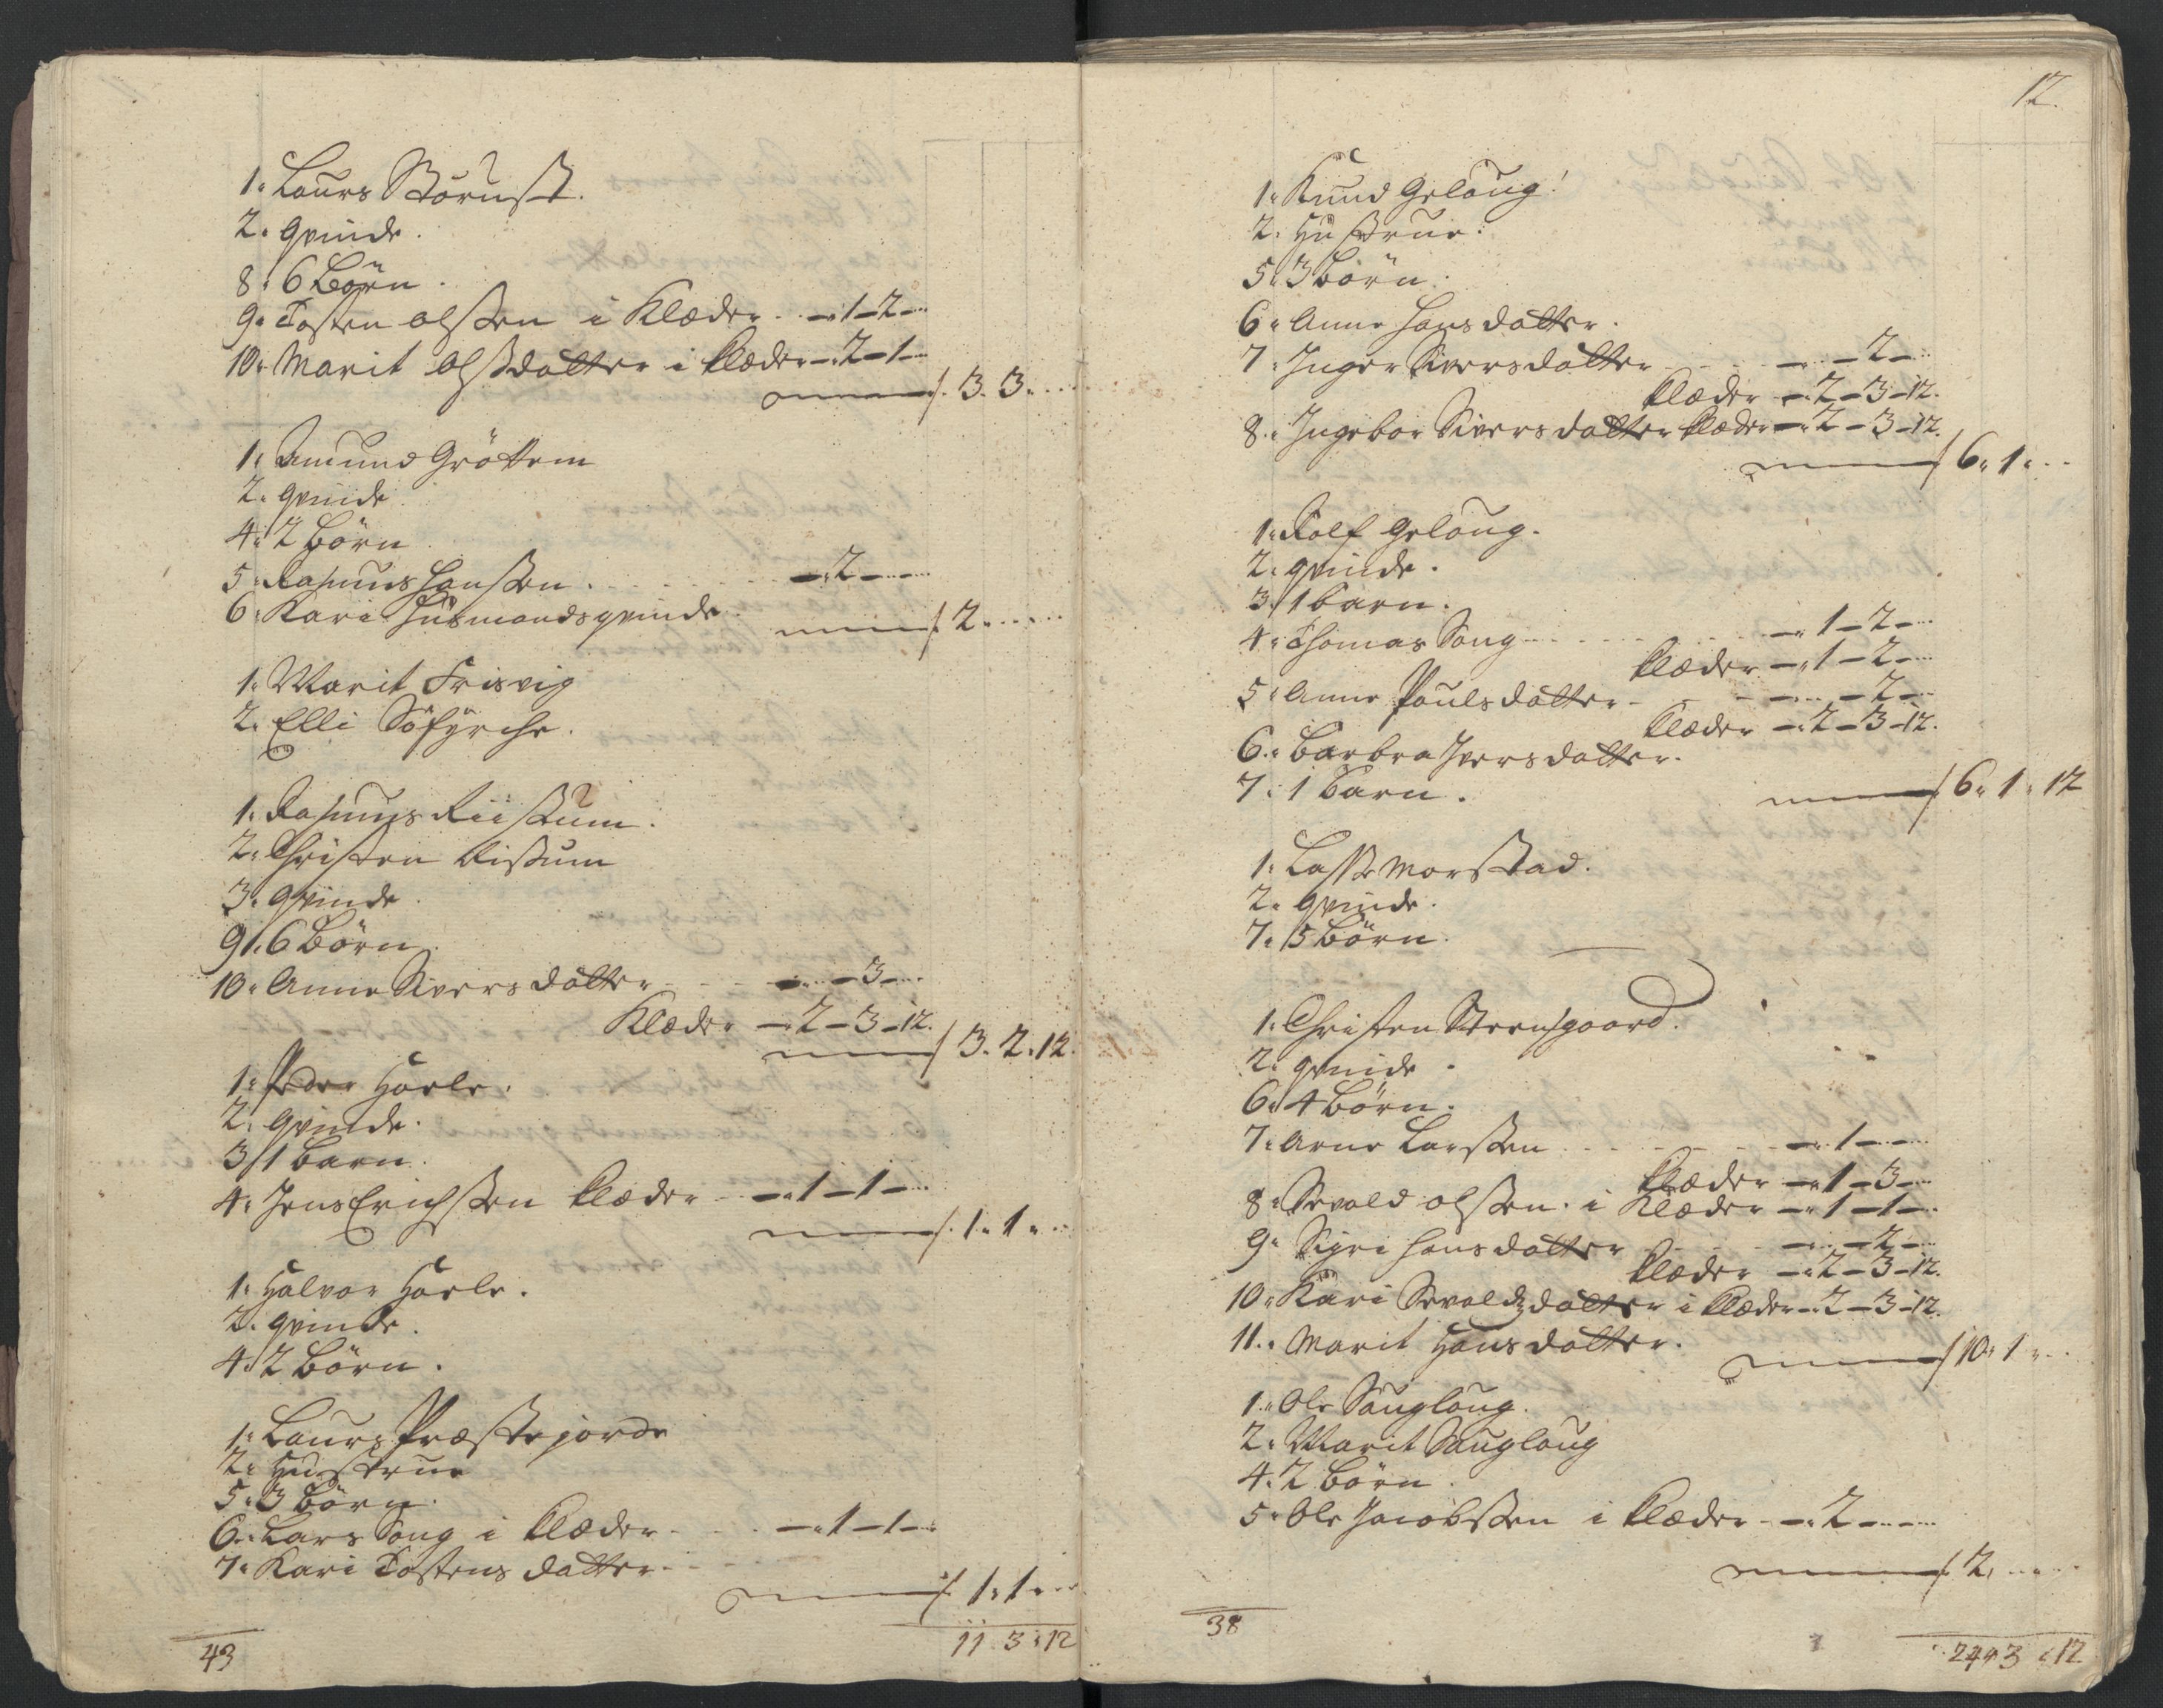 1. Laurs Störust.
2. qvinde.
8. 6 Börn.
9. Tosten olssen i Klæder - 1 - 2 -
10. Marit olsdatter i klæder - 2 - 1 -
3. 3.
1. Amund Gröttem
2. qvinde
4. 2 börn
5. Rasmus Hanssen - 2 -
6. Kari Huusmandsqvinde
2.
1. Marit Frisvig
2. Elli Söfyrche.
1. Rasmus Riisum.
2. Christen Risum
3. qvinde
9. 6 Börn.
10. Anne Siversdatter - 3 -
Klæder - 2 - 3 - 12.
3. 2. 12.
1. Peder Haele.
2. qvinde.
3. 1 barn.
4. Jens Erichssen klæder - 1 - 1 -
1. 1.
1. Halvor Haele.
2. qvinde.
4. 2 börn.
1. Laurs Præstejorde
2. Hustrue
5. 3 börn.
6. Lars Song i klæder - 1 - 1 -
7. Kari Tostens datter
1. 1.
43
11. 3. 12
12.
1. Knud Gelaug.
2. Hustrue.
5. 3 börn.
6. Anne Hansdatter.
7. Inger Siversdatter - 2 -
klæder - 2 - 3 - 12.
8. Ingebor Siversdatter klæder - 2 - 3 - 12.
6. 1.
1. Rolf Gelaug.
2. qvinde.
3. 1 barn.
4. Thomas Song - 1 - 2 -
klæder - 1 - 2 -
5. Anne Paulsdatter - 2 -
klæder - 2 - 3 - 12.
6. Barbra Iversdatter.
7. 1 barn.
6. 1. 12
1. Lasse Morstad.
2. qvinde.
7. 5 börn.
1. Christen Steensgaard.
2. qvinde.
6. 4 börn.
7. Arne Larssen - 1 -
klæder - 1 - 3 -
8. Sevald olssen i Klæder - 1 - 1 -
9. Sigri Hansdatter - 2 -
klæder - 2 - 3 - 12.
10. Kari Sevaldsdatter i klæder - 2 - 3 - 12.
11. Marit Hansdatter.
10. 1.
1. Ole Sauglaug.
2. Marit Sauglaug
4. 2 börn.
5. Ole Jacobssen i klæder - 2 -
2.
38
24. 3. 12